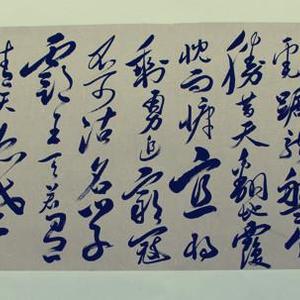 虎踞龍盤今
勝昔天翻地覆
慨而慷宜将
剩勇追窮寇
不可沽名学
霸王天若有
情天亦老